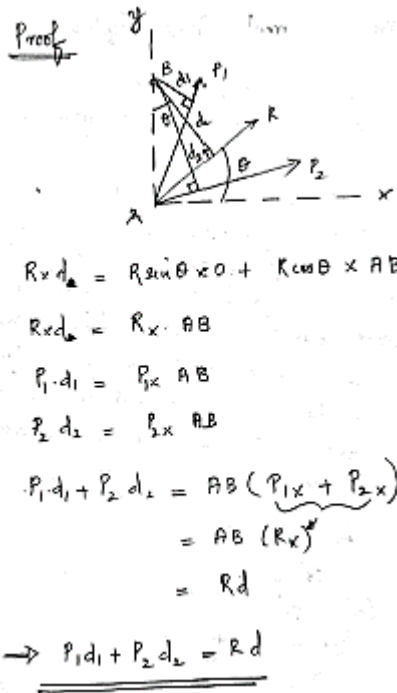 Proof
y
B
d1
P1
θ
d
R
d2
θ
P2
A
x
R x d = R sin θ x 0 + R cos θ x AB
R x d = Rx. AB
P1.d1 = P1x AB
P2 d2 = P2x AB
P1.d1 + P2 d2 = AB (P1x + P2x)
= AB (Rx)
= Rd
→ P1d1 + P2d2 = Rd